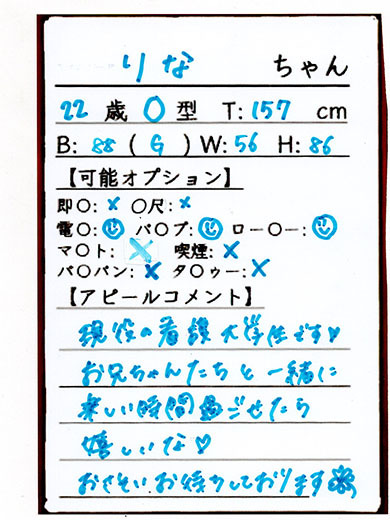 りな ちゃん
22 歳 O 型 T: 157 cm
B: 88 ( G ) W: 56 H: 86
【可能オプション】
即〇: × 〇尺: ×
電〇: ☺ バ〇ブ: ☺ ロー〇ー: ☺
マ〇ト: × 喫煙: ×
パ〇パン: × タ〇ゥー: ×
【アピールコメント】
現役の看護大学生です♡
お兄ちゃんたちと一緒に
楽しい時間過ごせたら
嬉しいな♡
おさそいお待ちしております